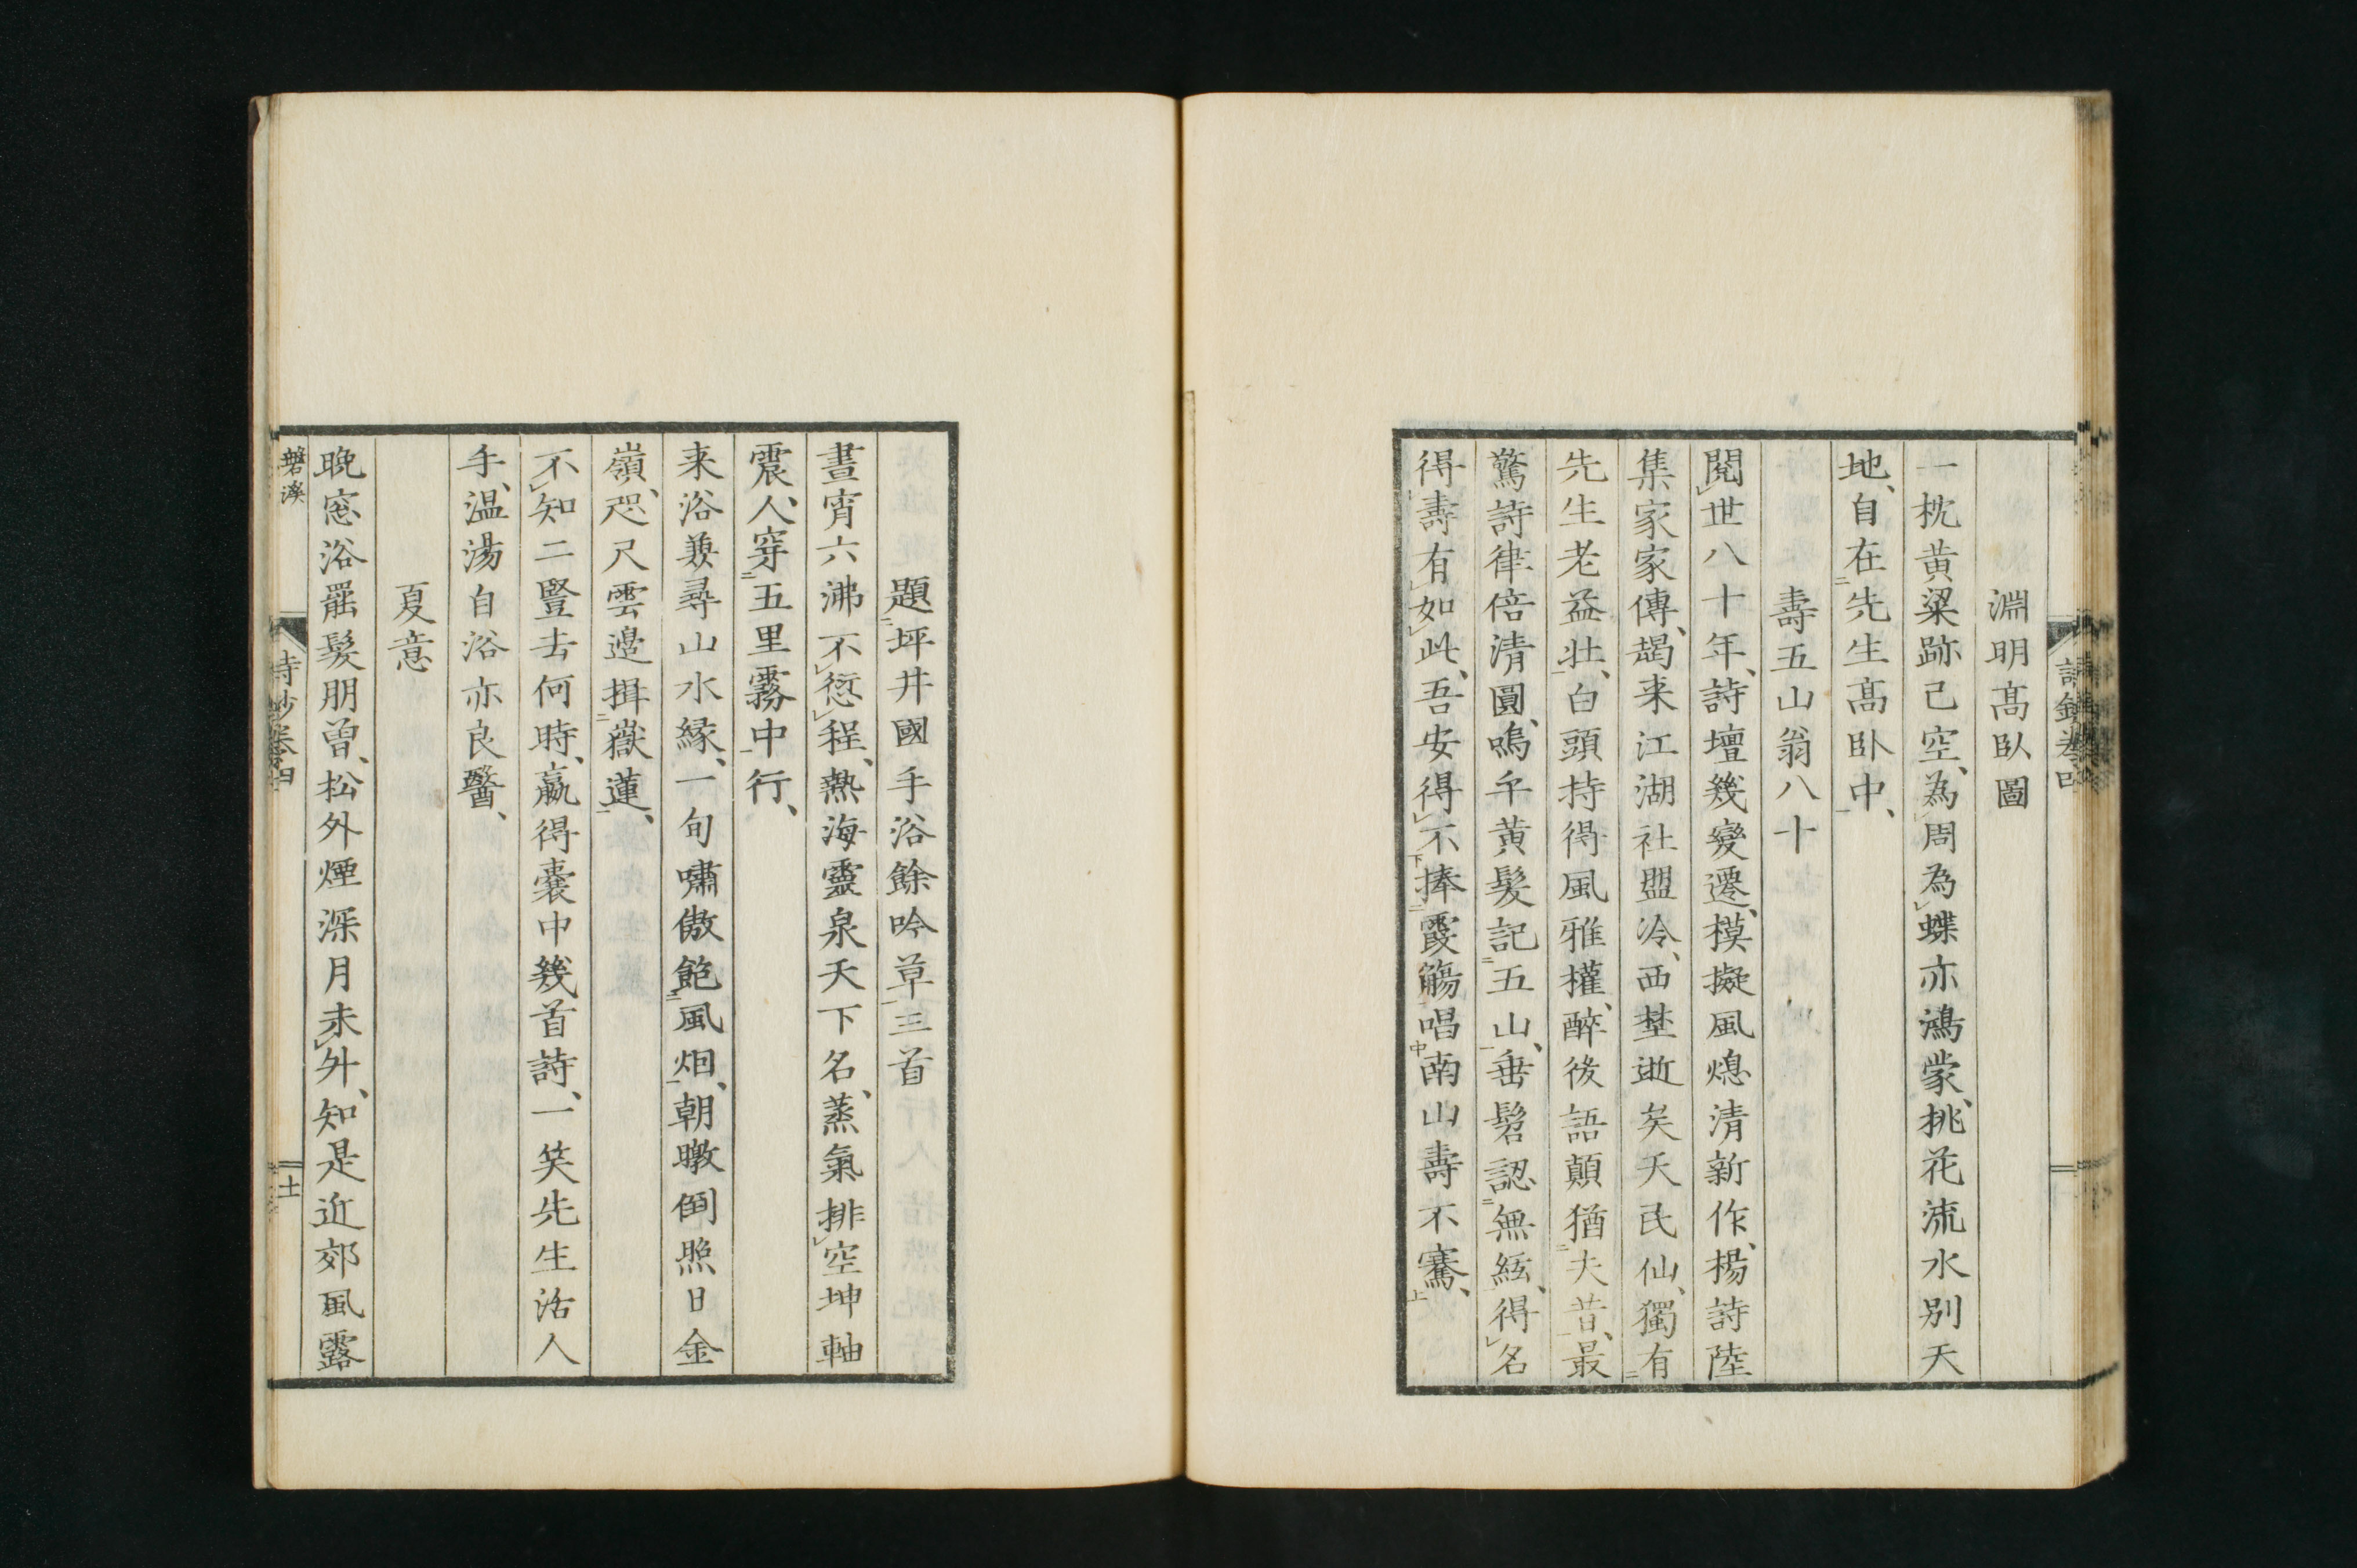 淵明髙臥圖
一枕黄粱跡已空、為周為蝶亦鴻蒙、挑花流水別天
地、自在先生髙卧中、
壽五山翁八十
閲世八十年、詩壇幾變遷、模擬風熄清新作、楊詩陸
集家家傳、朅来江湖社盟冷、西埜逝矣天民仙、獨有
先生老益壮、白頭持得風雅權、醉後語顛猶夫昔、最
驚詩律倍清圓、嗚乎黄髮記五山、垂髫認無絃、得名
得壽有如此、吾安得不捧霞觴唱南山壽不騫、
題坪井國手浴餘吟草三首
晝宵六沸不愆程、熱海靈泉天下名、蒸氣排空坤軸
震、人穿五里霧中行、
来浴兼尋山水縁、一旬嘯傲飽風烟、朝暾倒照日金
嶺、咫尺雲邊揖嶽蓮、
不知二豎去何時、贏得囊中幾首詩、一笑先生活人
手、温湯自浴亦良醫、
夏意
晩窓浴罷髮朋曽、松外煙深月未升、知是近郊風露
磐溪
詩鈔卷四
十一